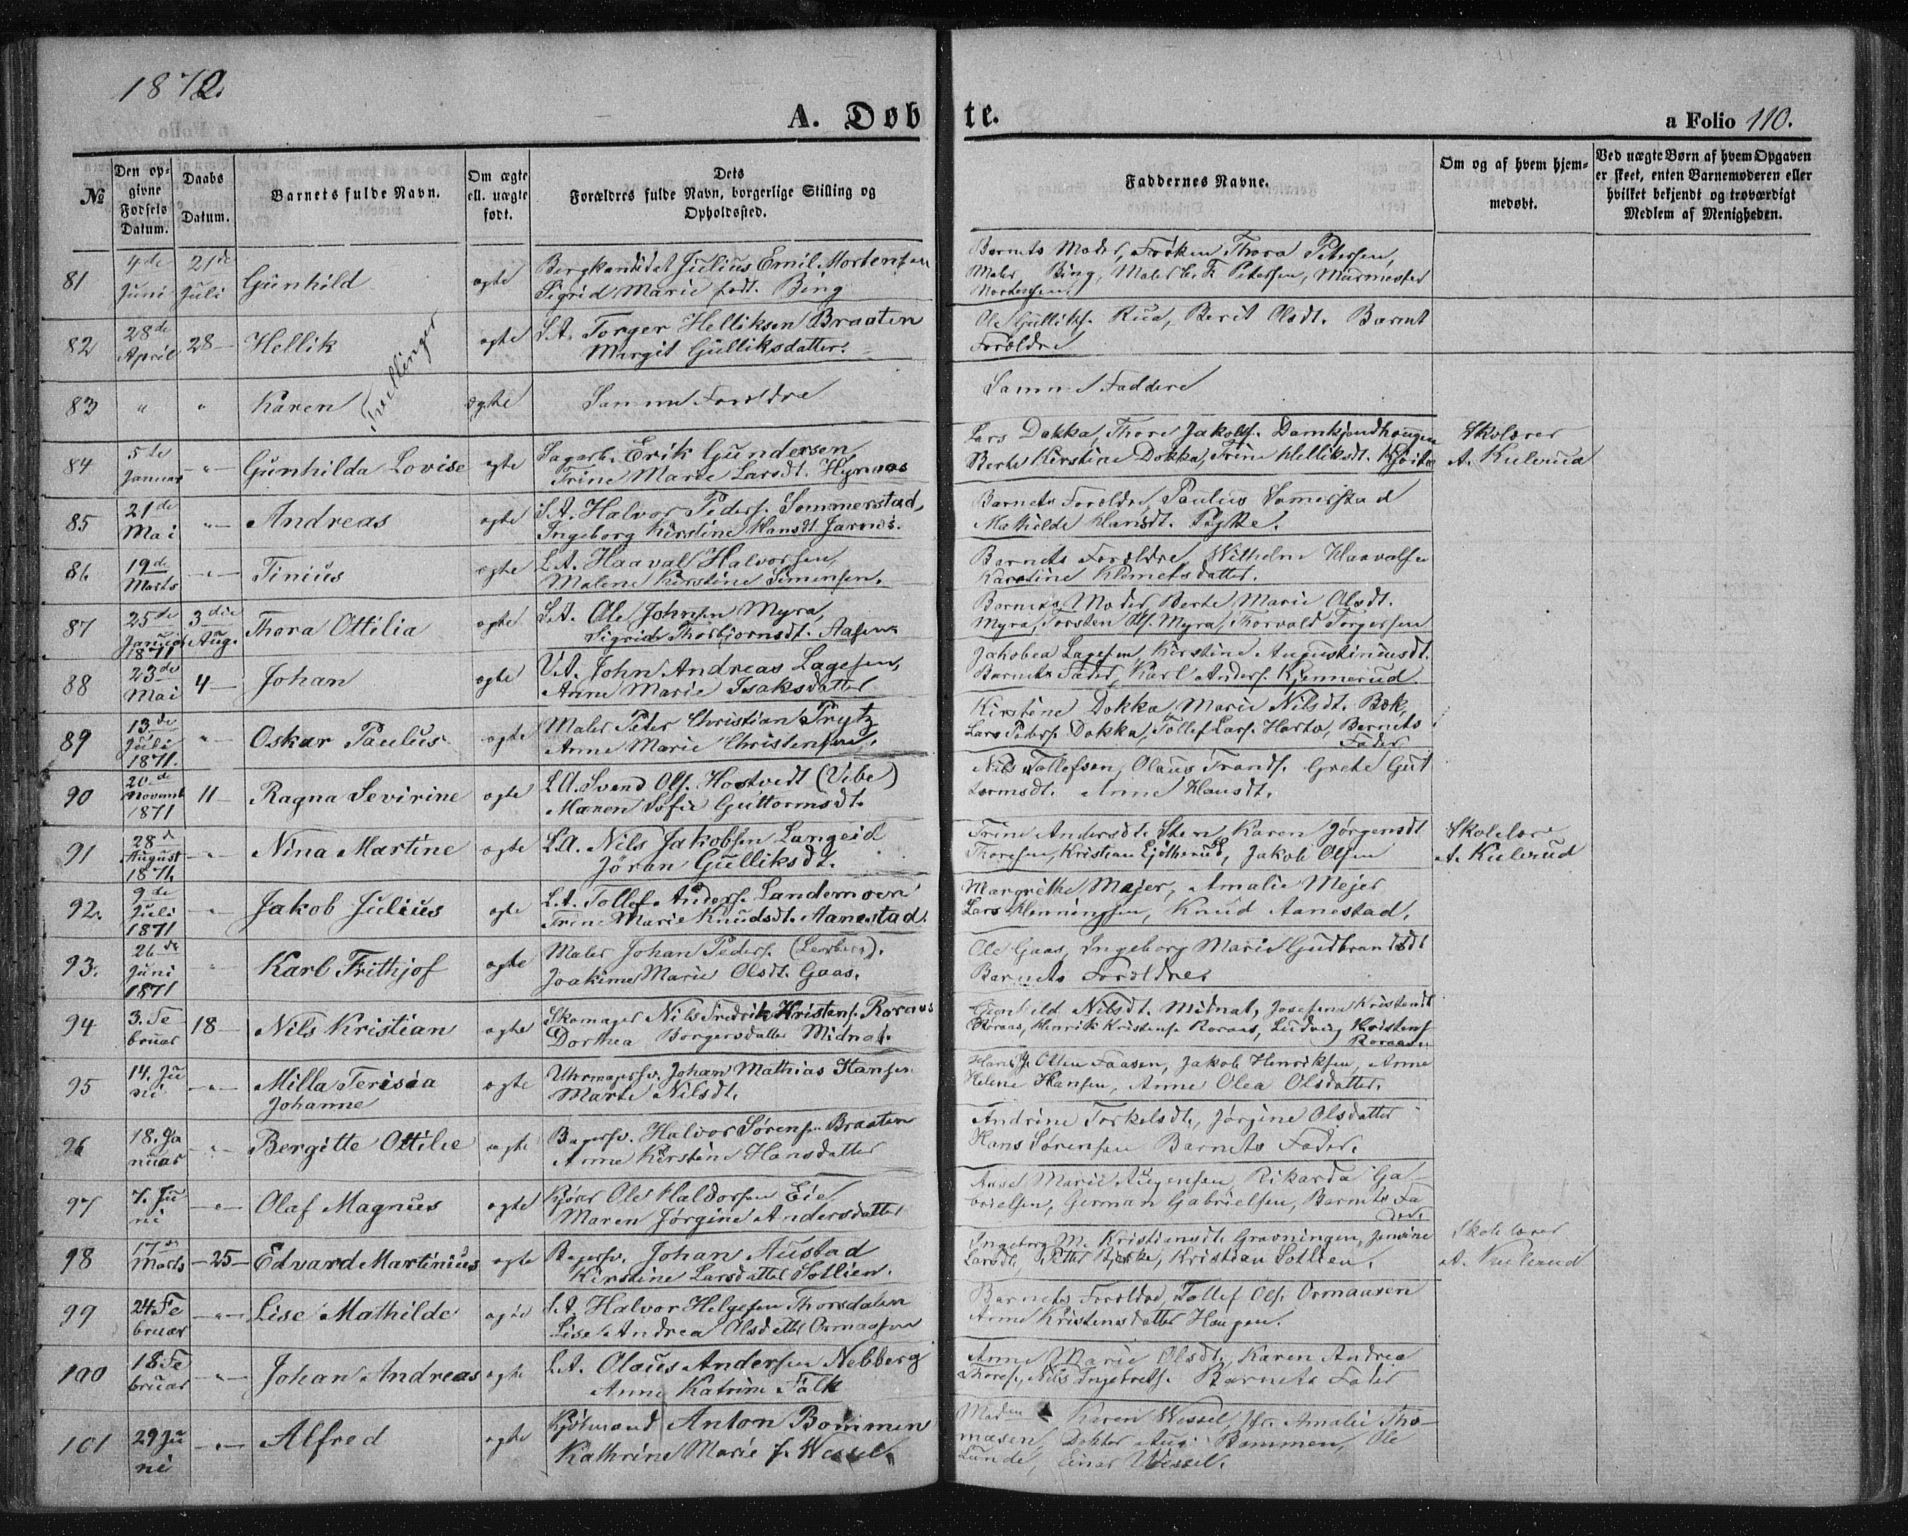 1872.
A. Døbte.
a Folio 110.
№
Den opgivne Fødsels Datum.
Daabs Datum.
Barnets fulde Navn.
Om ægte ell. uægte født.
Dets Forældres fulde Navn, borgerlige Stilling og Opholdssted.
Faddernes Navne.
Om og af hvem hjemmedøbt.
Ved uægte Børn af hvem Opgaven er skeet, enten Barnemoderen eller hvilket bekjendt og troværdigt Medlem af Menigheden.
81 4de Juni 21de Juli Gunhild ægte Bergkandidat Julius Emil Mortensen
Sigrid Marie født Bing
Barnets Moder, Frøken Thora Petersen,
Maler Bing, Maler E. F. Petersen, Murmester
Mortensen.
82 28de April 28 Hellik ægte L.A. Torger Helliksen Braaten
Margit Gulliksdatter.
Tvillinger
Ole Golliks. Rua, Berit Olsdt. Barnet
Forældre
83 " " Karen ægte Samme Forældre
Samme Faddere
84 5te Januar " Gunhilda Lovise ægte Sagarb. Erik Gundersen,
Trine Marie Larsdt. Hynnas
Lars Dokka, Thore Jakobs. Damkjendhaugen
Berte Kirstine Dokka, Trine Helliksdt.
Skolærer
A. Kulerud
85 21de Mai " Andreas ægte L.A. Halvor Peders. Sommerstad,
Ingeborg Kirstine Hansdt. Jarnes.
Barnets Forældre, Paulus Somerstad
Mathilde Hansdt. Pytte.
86 19de Marts " Tinius ægte L.A. Haaval Halvorsen,
Malene Kirstine Simensen.
Barnets Forældre, Wilhelm Haavalsen
Karstine Klemetsdatter.
87 25de Januar 1871 3die Aug. Thora Ottilia ægte L.A. Ole Johnsen Myra,
Sigrid Thorbjørnsdt. Aasen
Barnets Moder, Berte Marie Olsdt.
Myra, Torsten Ols. Myra, Thorvald Torgersen
88 23de Mai 4 Johan ægte V.A. John Andreas Lagesen,
Anne Marie Isaksdatter
Jakobea Lagesen, Kirstine Augustinusdt.
Barnets Fader, Karl Anders. Kjennerud
89 13de Juli 1871. " Oskar Paulus ægte Maler Peter Christian Prytz
Anne Marie Christensen.
Kirstine Dokka, Marie Nilsdt. Bøk,
Lars Peders. Dokka, Tollef Lars. Harto, Barnets
Fader
90 20de Novemb 1871 11 Ragna Sevirine ægte L.A. Svend Ols. Hostvedt (Vebe)
Maren Sofie Guttormsdt.
Nils Tollefsen, Olaus Frands. Grete Gut
tormsdt. Anne Hansdt.
91 28d August 1871. " Nina Martine ægte L.A. Nils Jakobsen Langeid
Jøran Gulliksdt.
Trine Andersdt. Sten, Karen Jørgensdt
Thoresen, Kristian Ljøtherud, Jakob Olsen
Skolelærer
A. Kulerud
92. 9de Juli 1871 " Jakob Julius ægte L.A. Tollef Anders. Landemoen
Trine Marie Knudsdt. Aanestad.
Margrethe Mejer, Amalie Mejer
Lars Henningsen, Knud Aanestad.
93. 26de Juni 1871 " Karl Frithjof ægte Maler Johan Peders. (Lerberg).
Joakime Marie Olsdt. Gaas.
Ole Gaas, Ingeborg Marie Gudbrandsdt
Barnets Forældre
94 3. Februar 18 Nils Kristian ægte Skomager Nils Fredrik Kristens. Roraas
Dorthea Borgersdatter Midnat.
Gunhild Nilsdt. Midnat, Josefine Kristensdt
Roraas, Henrik Kristens. Roraas, Ludvig Kristens.
Roraas
95 14. Juni " Milla Terisia Johanne ægte Uhrmagersv. Johan Mathias Hansen
Marte Nilsdt.
Hans J. Olsen Faasen, Jakob Henriksen, Anne
Helene Hansen, Anne Olea Olsdatter.
96 18. Januar " Bergitte Ottilie ægte Bagersv. Halvor Sørensen Braaten
Anne Kirstine Hansdatter
Andrine Torkelsdt, Jørgine Olsdatter
Hans Sørensen Barnets Fader.
97 7. Juni " Olaf Magnus ægte Kjører Ole Haldorsen Eie
Maren Jørgine Andersdatter
Anne Marie Augensen, Rikarda Ga
brielsen, German Gabrielsen, Barnets Fa
der
98 17de Marts 25 Edvard Martinius ægte Bagersv. Johan Austad
Kirstine Larsdatter Sotlien.
Ingeborg M. Kristiansdt. Gravningen, Jensine
Larsdt, Petter Bjerke, Kristian Sotlien.
Skolelærer
A. Kulerud
99 24. Februar " Lise Mathilde ægte L.A. Halvor Helgesen Thorsdalen
Lise Andrea Olsdatter Ormaasen
Barnets Forældre, Tollef Ols. Ormaasen
Anne Kristensdatter Haugen.
100 18 Februar " Johan Andreas ægte L.A. Olaus Andersen Nebberg
Anne Katrine Falk
Anne Marie Olsdt, Karen Andrea
Thores., Nils Ingebrets. Barnets Fader
101 29 Juni " Alfred ægte Kjøbmand Anton Bommen
Kathrine Marie f. Wessel.
Madam Karen Wessel, Jfr. Amalie Tho-
mæsen, Doktor Aug. Bommen, Ole
Lunde, Einar Wessel.